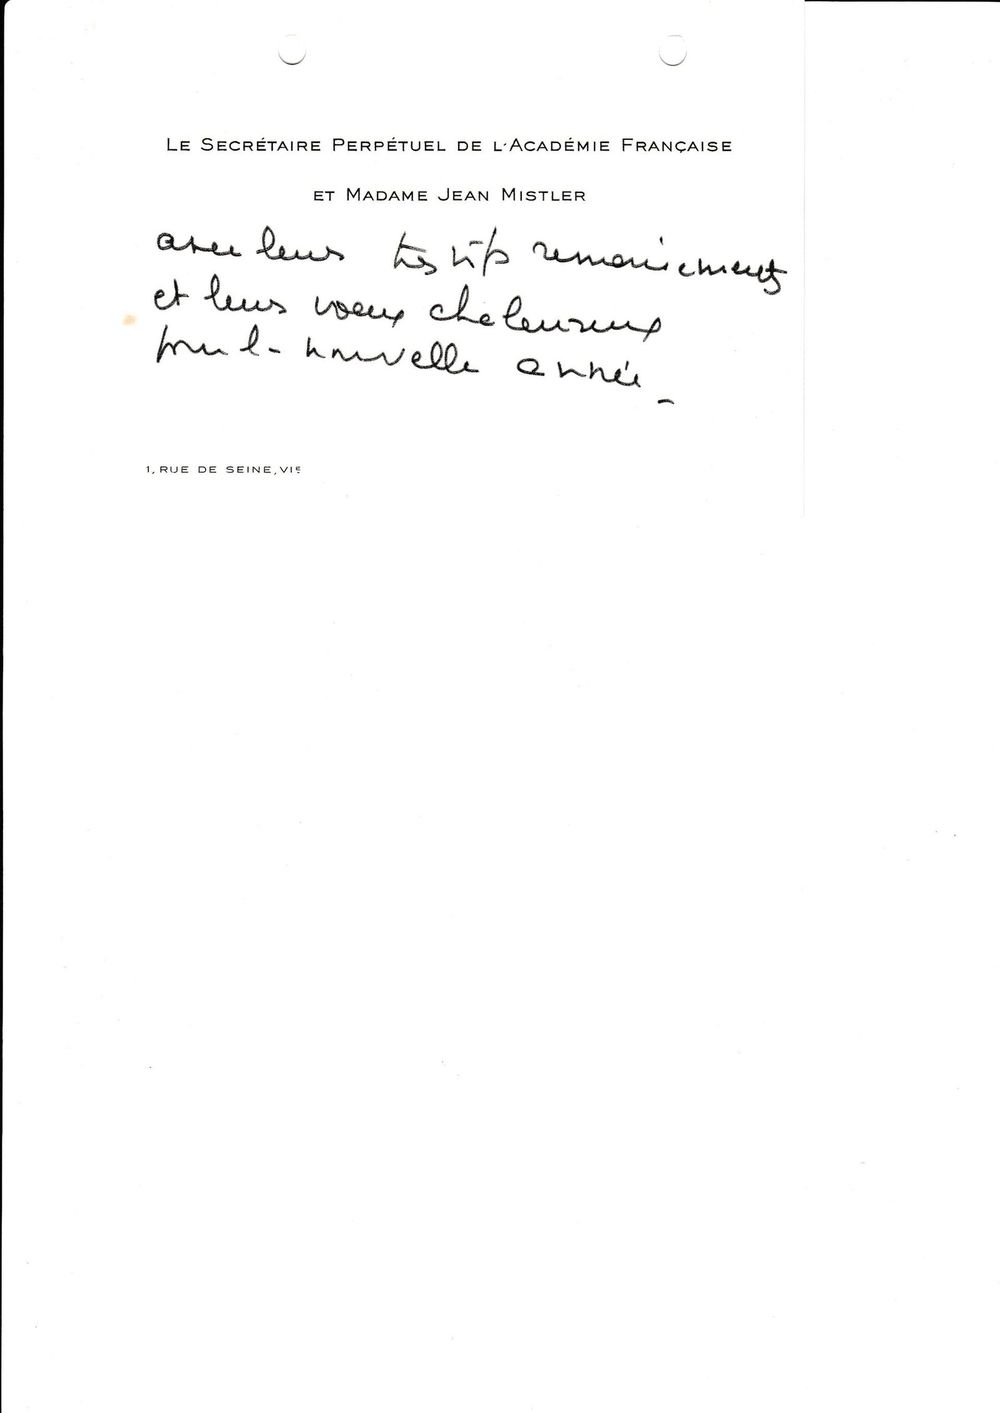 Le Secrétaire Perpétuel de l'Académie Française
et Madame Jean Mistler
avec leurs très vifs remerciements
et leurs voeux chaleureux
pour la nouvelle année_
1, RUE DE SEINE, VIe